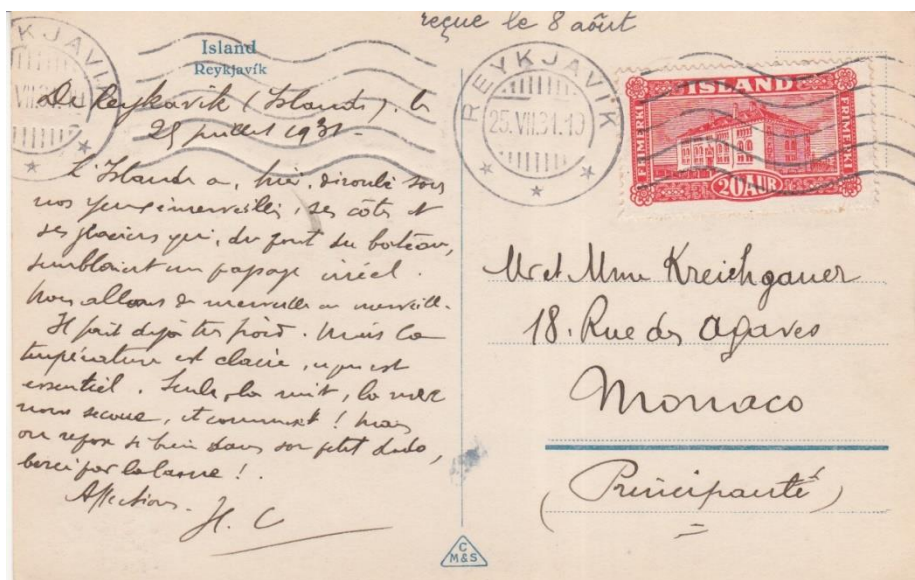 reçue le 8 août
Island
Reykjavík
REYKJAVIK
VII
REYKJAVIK
25.VII.31.19
ISLAND
FRIMERKI
FRIMERKI
20 AUR
De Reykavik (Islande). le
25 juillet 1931.
L'Islande a, hier, déroulé sous
nos yeux émerveillés, ses côtes et
ses glaciers qui, du pont du bateau,
semblaient un paysage irréel.
Nous allons de merveille en merveille.
Il fait déjà très froid. Mais la
température est claire, ce qui est
essentiel. Seule, la nuit, la mer
nous secoue, et comment ! Mais
on repose si bien dans son petit dodo,
bercé par la lame !
Affections.
H. C
Mr et Mme Kreichgauer
18. Rue des Agaves
Monaco
(Principauté)
C
M&S